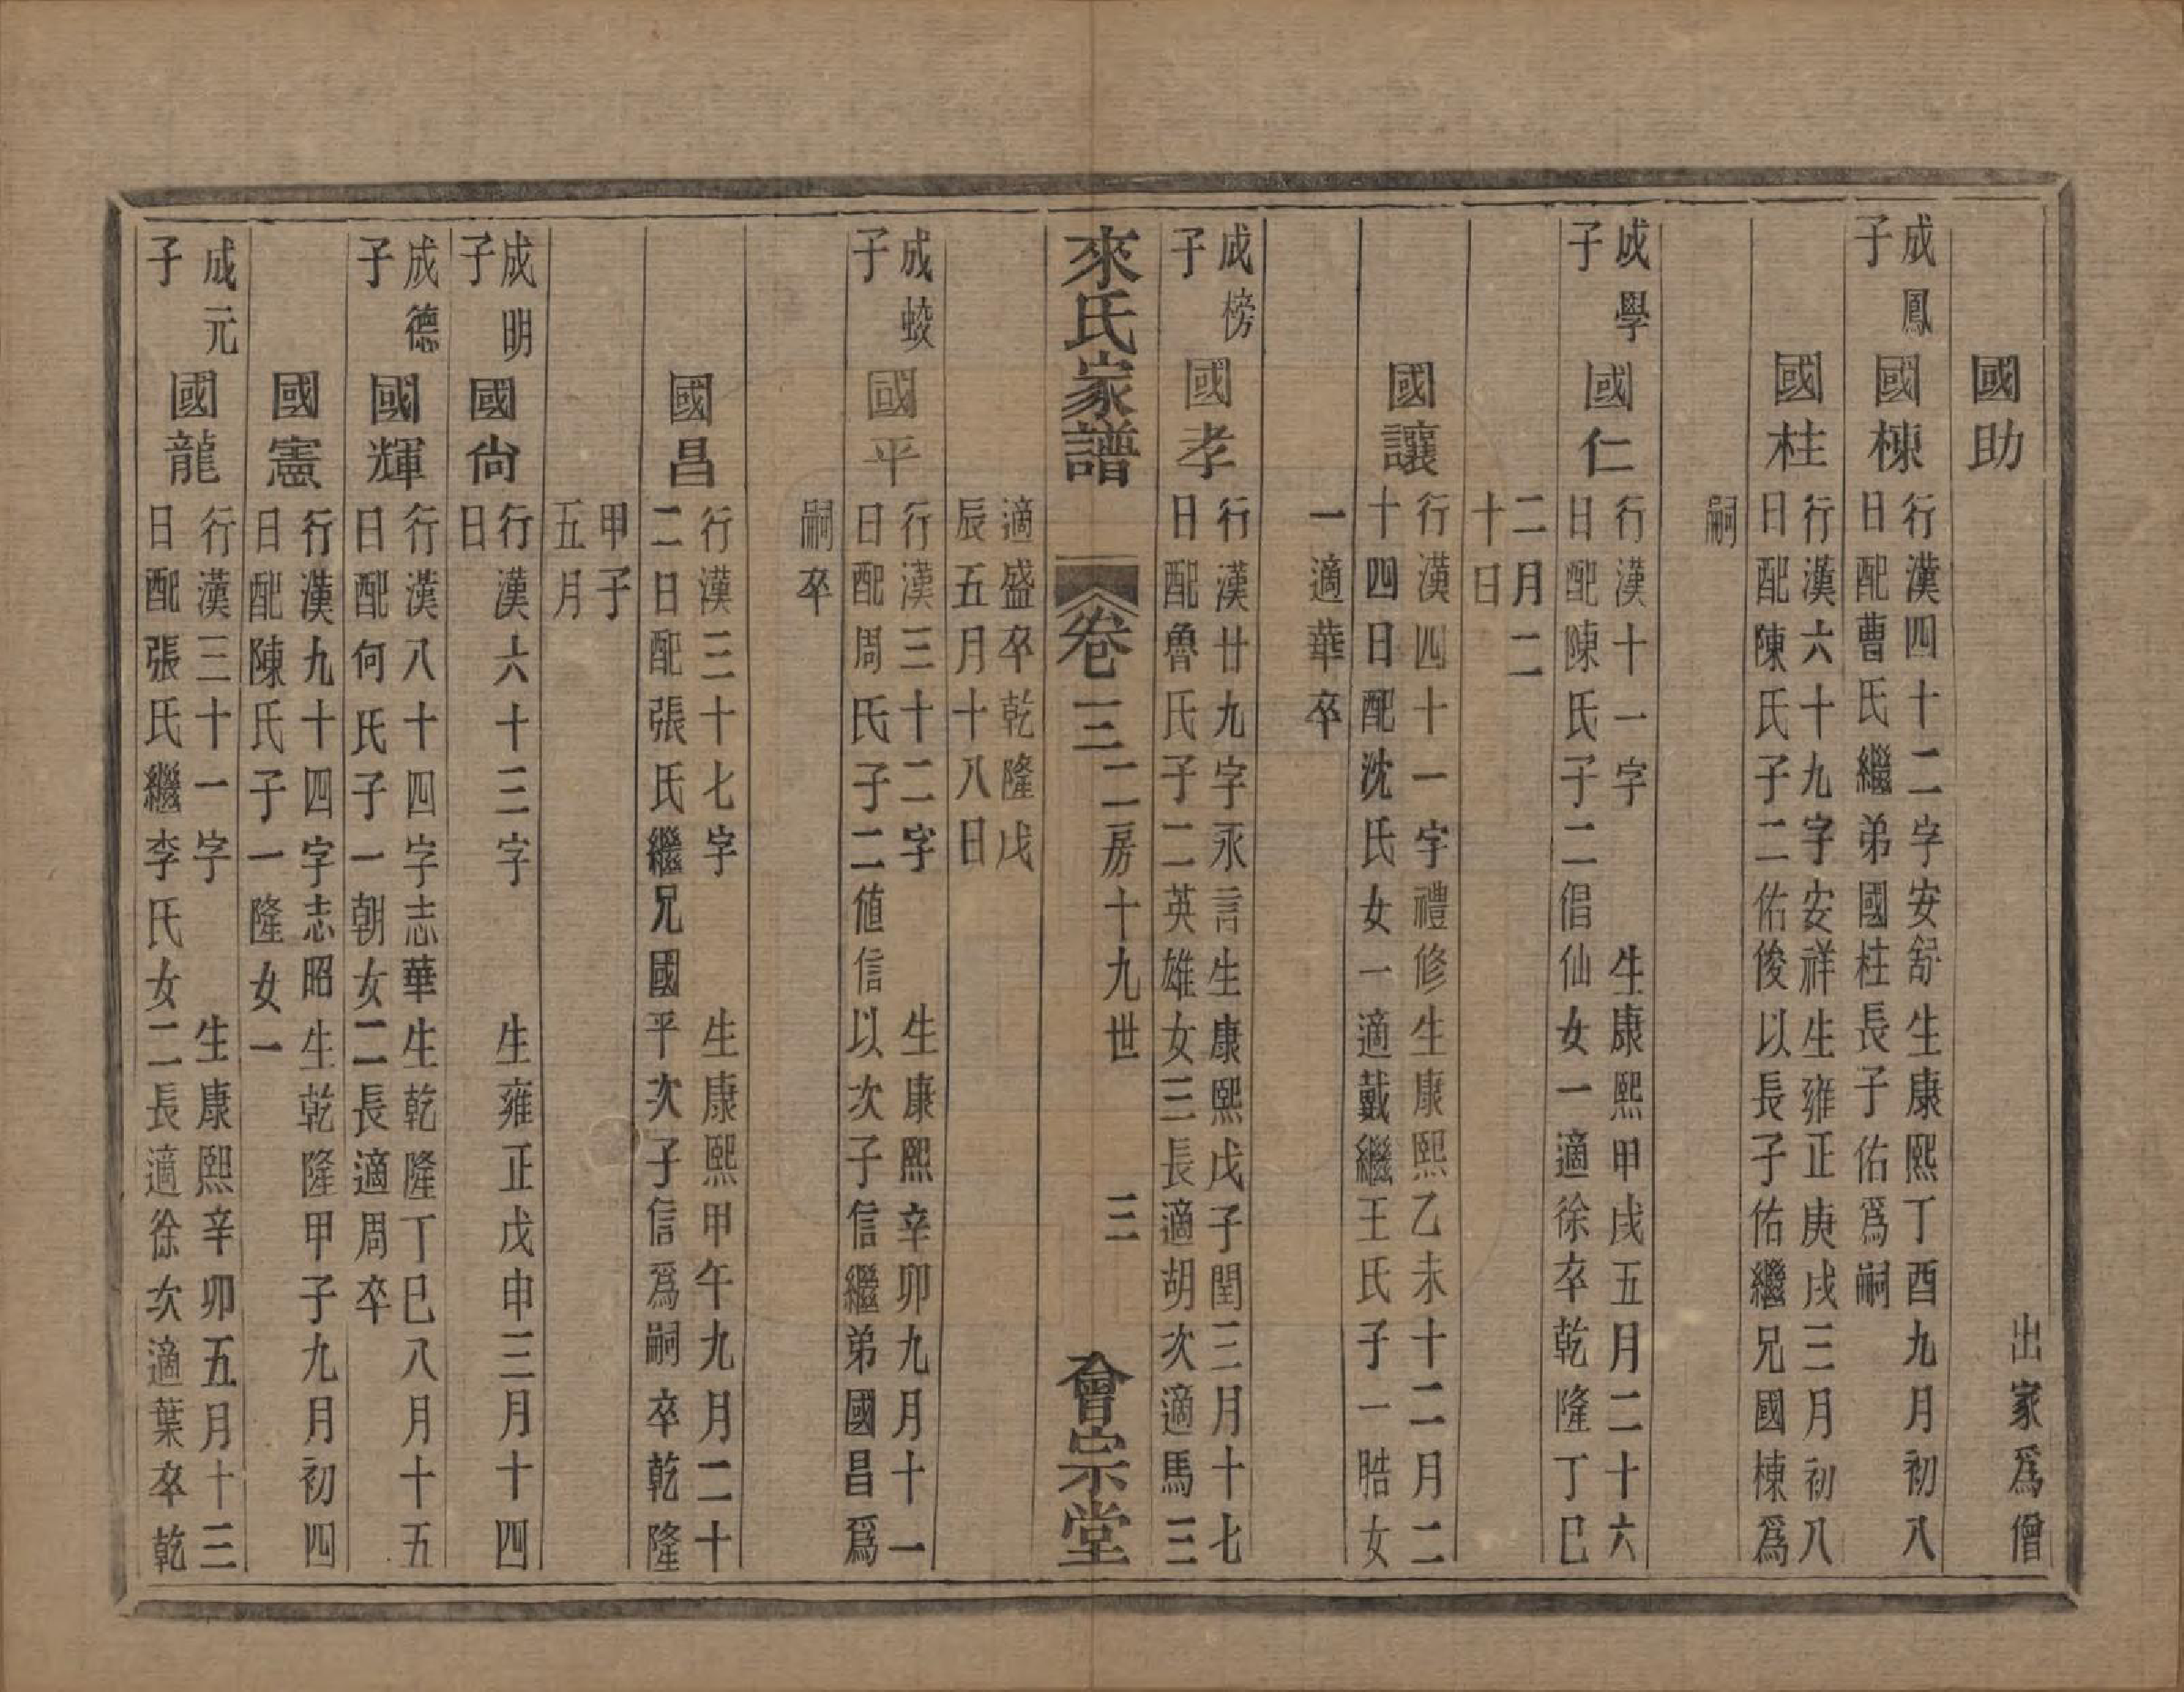 國助
出家爲僧
成鳳
子
國棟
行漢四十二字安舒生康熙丁酉九月初八
日配曹氏繼弟國柱長子佑爲嗣
國柱
行漢六十九字安祥生雍正庚戌三月初八
日配陳氏子二佑俊以長子佑繼兄國棟爲
嗣
成學
子
國仁
行漢十一字 生康熙甲戌五月二十六
日配陳氏子二倡仙女一適徐卒乾隆丁巳
二月二
十日
國讓
行漢四十一字禮修生康熙乙未十二月二
十四日配沈氏女一適戴繼王氏子一晧女
一適華卒
成榜
子
國孝
行漢廿九字永言生康熙戊子閏三月十七
日配魯氏子二英雄女三長適胡次適馬三
來氏家譜
卷三
二房十九世
三
會宗堂
適盛卒乾隆戊
辰五月十八日
成蛟
子
國平
行漢三十二字 生康熙辛卯九月十一
日配周氏子二値信以次子信繼弟國昌爲
嗣卒
國昌
行漢三十七字 生康熙甲午九月二十
二日配張氏繼兄國平次子信爲嗣卒乾隆
甲子
五月
成明
子
國尙
行漢六十三字 生雍正戊申三月十四
日
成德
子
國輝
行漢八十四字志華生乾隆丁巳八月十五
日配何氏子一朝女二長適周卒
國憲
行漢九十四字志昭生乾隆甲子九月初四
日配陳氏子一隆女一
成元
子
國龍
行漢三十一字 生康熙辛卯五月十三
日配張氏繼李氏女二長適徐次適葉卒乾